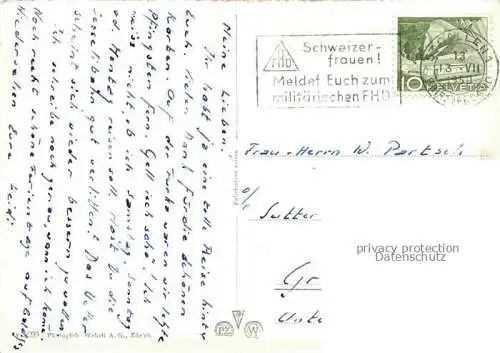 Meine Lieben.
Ihr habt ja eine tolle Reise hinter
Euch. Vielen Dank für die schönen
Karten. Auf der Furka waren wir letzte
Pfingsten fern. Gell isch schö! Ich
weiss nicht, ob ich Samstag, Sonntag
od. Montag reisen soll. Hast Du die
Sesselibahn gut verlitten? Das Wetter
scheint sich wieder bessern zu wollen.
Ich schreibe noch genau, wann ich komme.
Noch recht schöne Ferientage auf baldiges
Wiedersehen Eure Heidi
Photoglob-Wehrli A. G., Zürich
FHD
Schweizer-
frauen!
Meldet Euch zum
militärischen FHD
13. VII
10
HELVETIA
Frau & Herrn W. Partsch
c/o
Sutter
Gr
Unte
privacy protection
Datenschutz